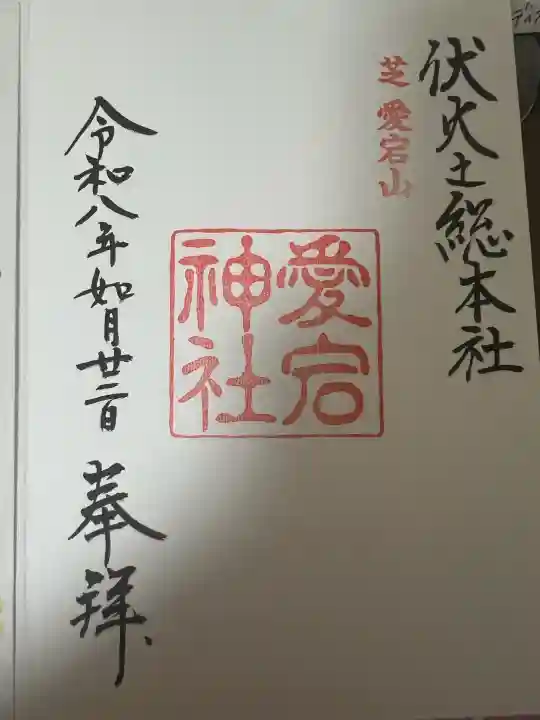 伏火之総本社
芝 愛宕山
愛宕
神社
令和八年如月廿二日
奉拝